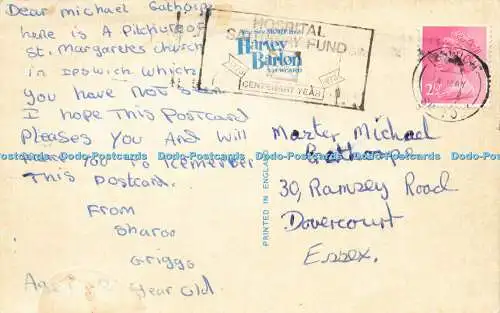 Dear michael Gathorpe
here is A Pitchure of
St. Margarets church
in Ipswich which
you have Not seen
I hope This Postcard
Pleases You And Will
This Postcard.
From
Sharon
Griggs
Age
year old.
HOSPITAL
SATURDAY FUND
1873
1973
CENTENARY YEAR
Harvey
Barton
PRINTED IN ENGLAND
IPSWICH
MAY
2½
Master Michael
Gathorpe
30, Ramsey Road
Dovercourt
Essex.
Dodo-Postcards Dodo-Postcards Dodo-Postcards Dodo-Postcards Dodo-Postcards